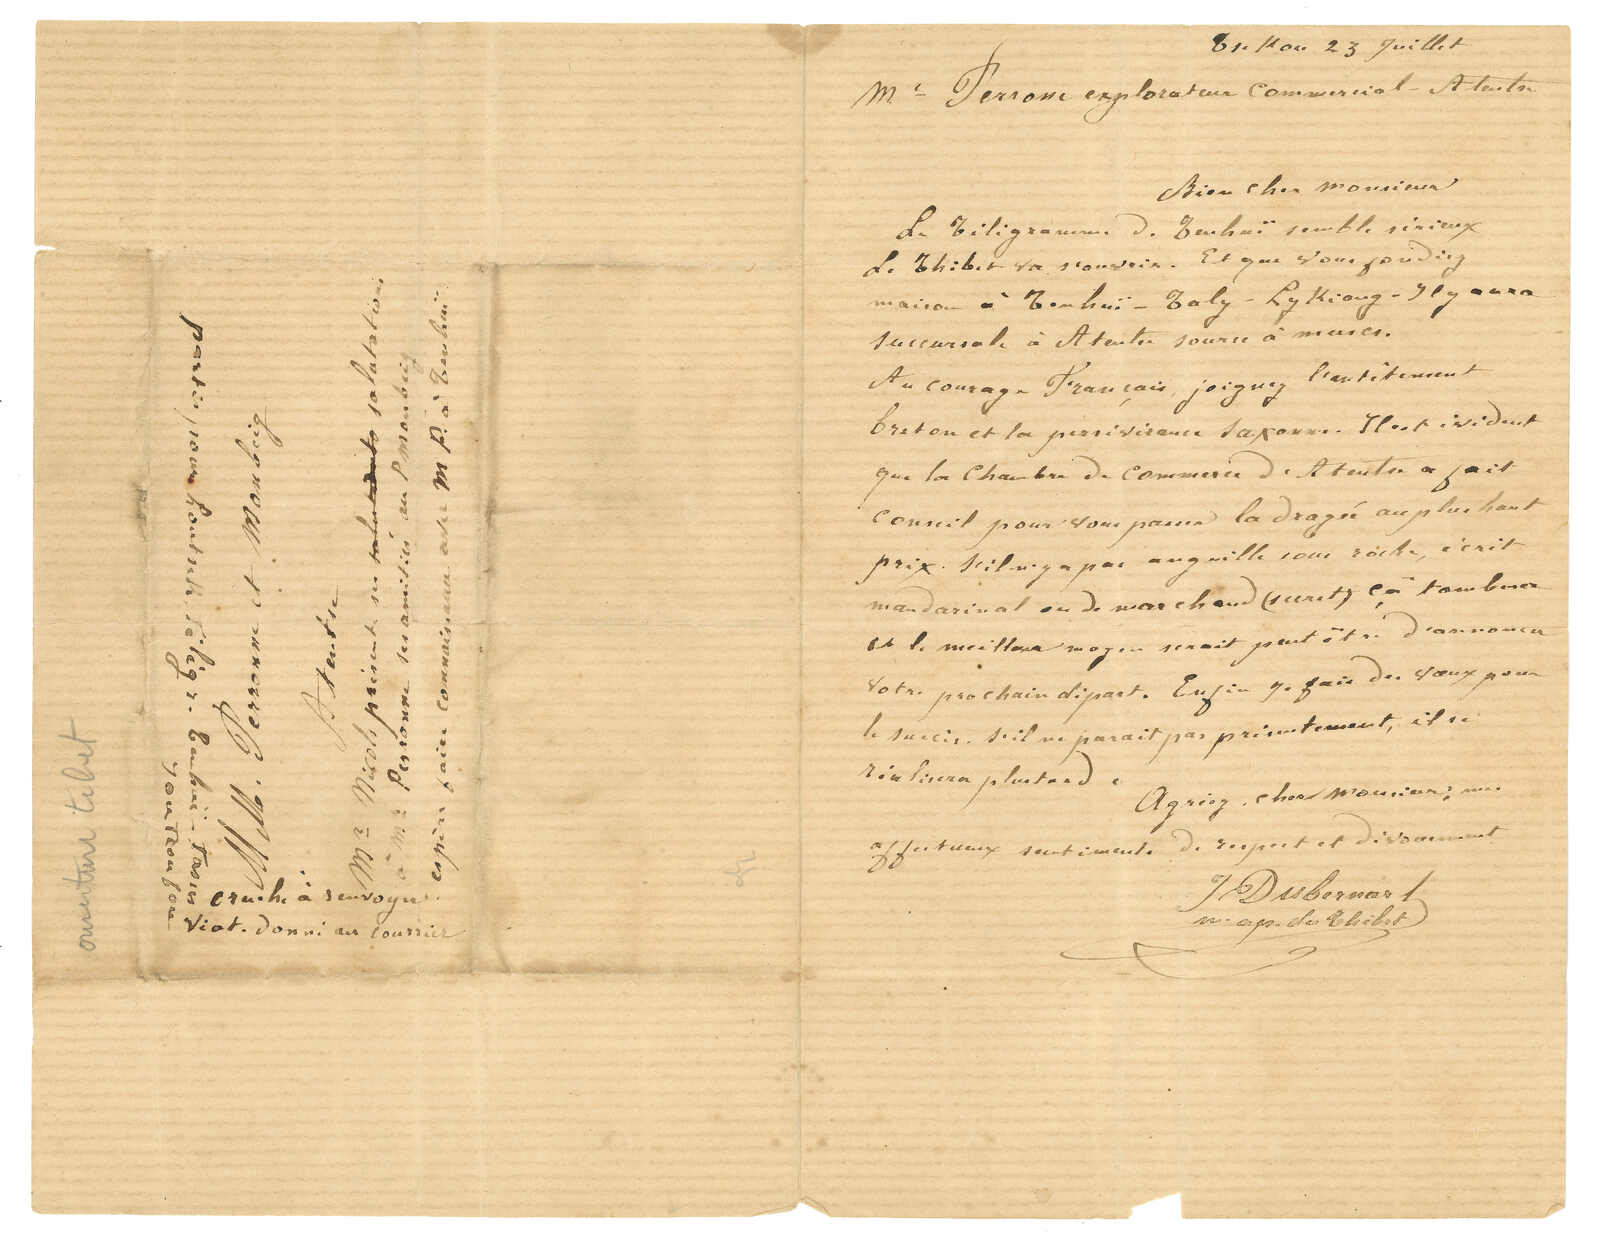 Tsekou 23 Juillet
Mr Perronne explorateur Commercial - Atentse
Bien cher Monsieur
Le Télégramme de Tenhuï semble sérieux
Le Thibet va s'ouvrir. Et que vous fondiez
maison à Tenhuï - Taly - Ly Kiang - Il y aura
succursale à Atentse source à muscs.
Au courage Français, joignez l'entêtement
breton et la persévérance Saxonne. Il est évident
que la Chambre de Commerce de Atentse a fait
conseil pour vous passer la dragée au plus haut
prix. S'il n'y a pas anguille sous roche, écrit
mandarinal ou de marchand (secret) çà tombera
et le meilleur moyen serait peut être d'annoncer
votre prochain départ. Enfin je fais des vœux pour
le succès. S'il ne parait pas présentement, il se
réalisera plus tard.
Agréez, cher Monsieur, mes
affectueux sentiments de respect et dévouement
J Dubernard
m. ap. du Thibet
Mr Nicols présente ses salutations
à Mr Peronne ses amitiés au P Monbeig
espère faire connaissance avec M P. à Tenhuï
MM. Perronne et Monbeig
Atentse
partis, sous
Tenhuï
cruche à renvoyer
Viat. donné au courrier
ouverture tibet